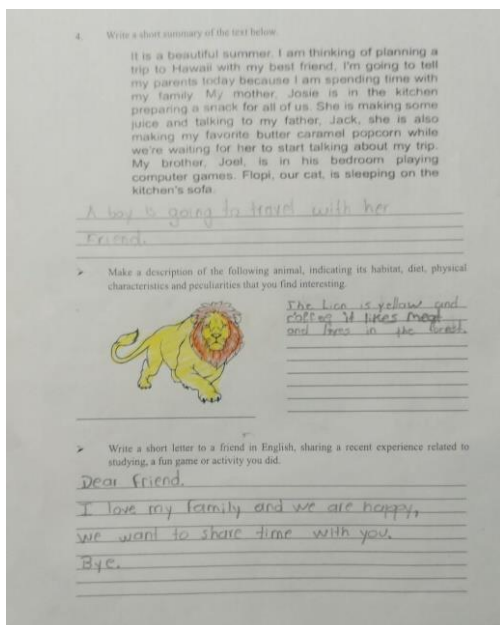 4. Write a short summary of the text below.
It is a beautiful summer. I am thinking of planning a
trip to Hawaii with my best friend. I'm going to tell
my parents today because I am spending time with
my family. My mother, Josie is in the kitchen
preparing a snack for all of us. She is making some
juice and talking to my father, Jack, she is also
making my favorite butter caramel popcorn while
we're waiting for her to start talking about my trip.
My brother, Joel, is in his bedroom playing
computer games. Flopi, our cat, is sleeping on the
kitchen's sofa.
A boy is going to travel with her
Friend.
➤ Make a description of the following animal, indicating its habitat, diet, physical
characteristics and peculiarities that you find interesting.
The Lion is yellow and
it likes meat
and lives in the forest.
➤ Write a short letter to a friend in English, sharing a recent experience related to
studying, a fun game or activity you did.
Dear Friend.
I love my family and we are happy,
we want to share time with you.
Bye.